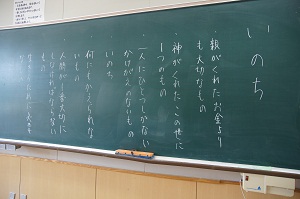 いのち
親がくれたお金より
も大切なもの
神がくれたこの世に
１つのもの
一人にひとつしかない
かけがえのないもの
いのち
何にもかえられな
いもの
人間が一番大切に
しなければならない
もの